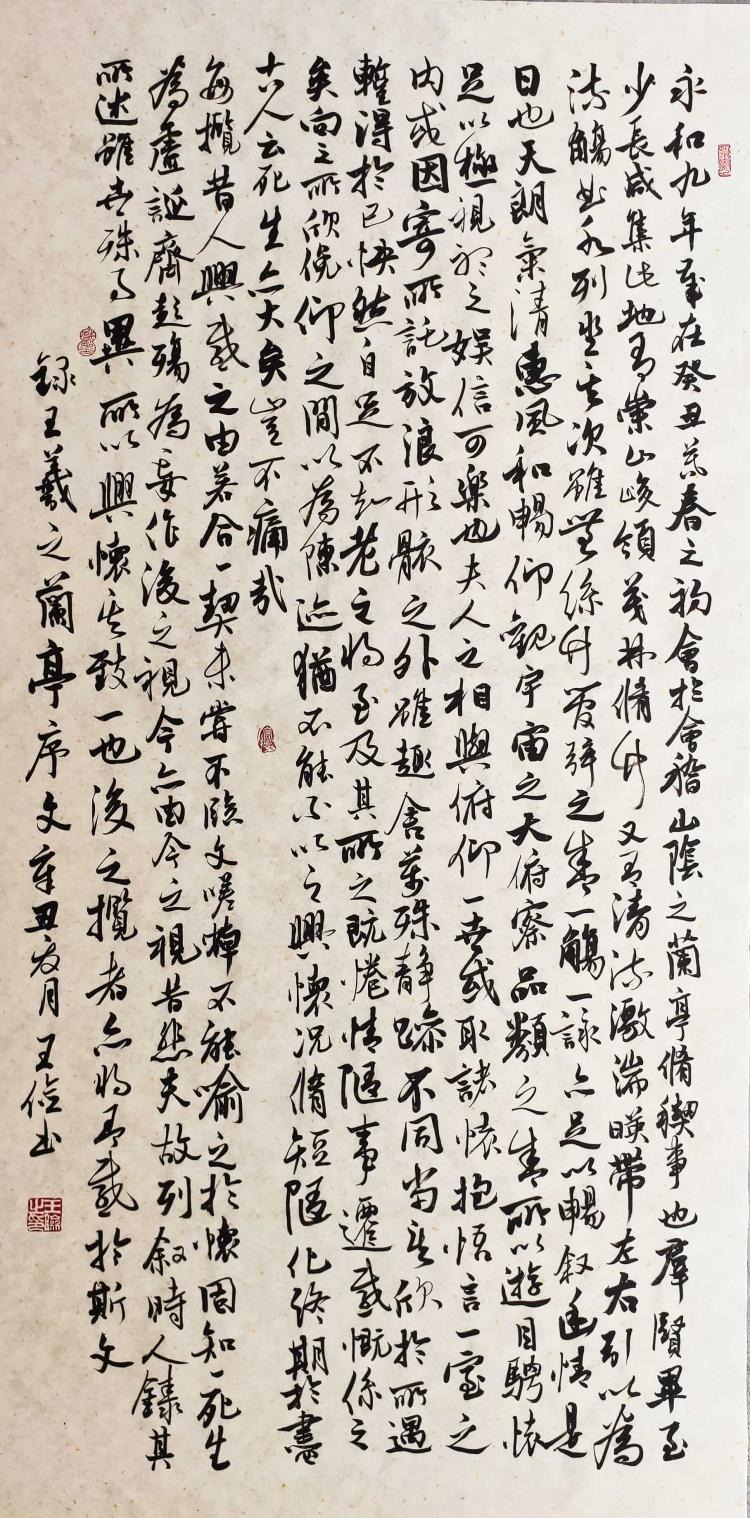 永和九年岁在癸丑暮春之初會於會稽山陰之蘭亭脩稧事也羣賢畢至
少長咸集此地有崇山峻領茂林脩竹又有清流激湍暎帶左右引以為
流觴曲水列坐其次雖無絲竹管弦之盛一觴一詠亦足以暢叙幽情是
日也天朗氣清惠風和暢仰觀宇宙之大俯察品類之盛所以遊目騁懷
足以極視聽之娛信可樂也夫人之相與俯仰一世或取諸懷抱悟言一室之
内或因寄所託放浪形骸之外雖趣舍萬殊静躁不同當其欣於所遇
蹔得於己快然自足不知老之將至及其所之既惓情隨事遷感慨係之
矣向之所欣俛仰之間以為陳迹猶不能不以之興懷況脩短隨化終期於盡
古人云死生亦大矣豈不痛哉
每攬昔人興感之由若合一契未嘗不臨文嗟悼不能喻之於懷固知一死生
為虛誕齊彭殤為妄作後之視今亦由今之視昔悲夫故列叙時人錄其
所述雖世殊事異所以興懷其致一也後之攬者亦將有感於斯文
録王羲之蘭亭序文辛丑夏月王俭书